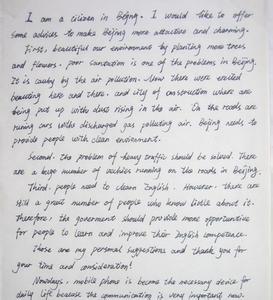 I am a citizen in Beijing. I would like to offer
some advices to make Beijing more attractive and charming.
First, beautiful our environment by planting more trees
and flowers. poor sanitation is one of the problems in Beijing.
It is cauby by the air pollution. Now there were erected
beauting here and there. and city of cassruction where are
being put up with dust rising in the air. On the roads are
runing cars with discharged gas polluting air. Beijing needs to
provide people with clean enviroment.
Second. the problem of heavy traffic should be solved. There
are a huge number of vechies running on the roads in Beijing.
Third. people need to learn English. However. there are
still a great number of people who know liddle about it.
therefore, the government should provide more opportunities
for people to learn and improve their English competence.
Those are my personal suggestions and thank you for
your time and consideration!
Nowdays. mobile phone is become the necessary device for
daily life because the communication is very important now.